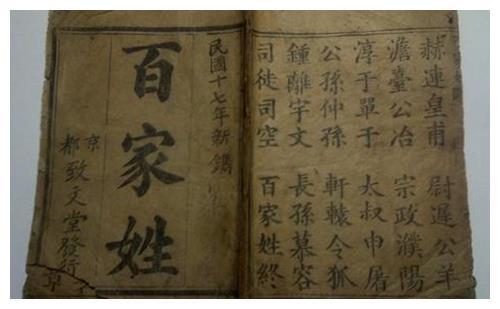 赫連皇甫 尉遲公羊
澹臺公冶 宗政濮陽
淳于單于 太叔申屠
公孫仲孫 軒轅令狐
鍾離宇文 長孫慕容
司徒司空 百家姓終
民國十七年新鐫
百家姓
京都致文堂發行